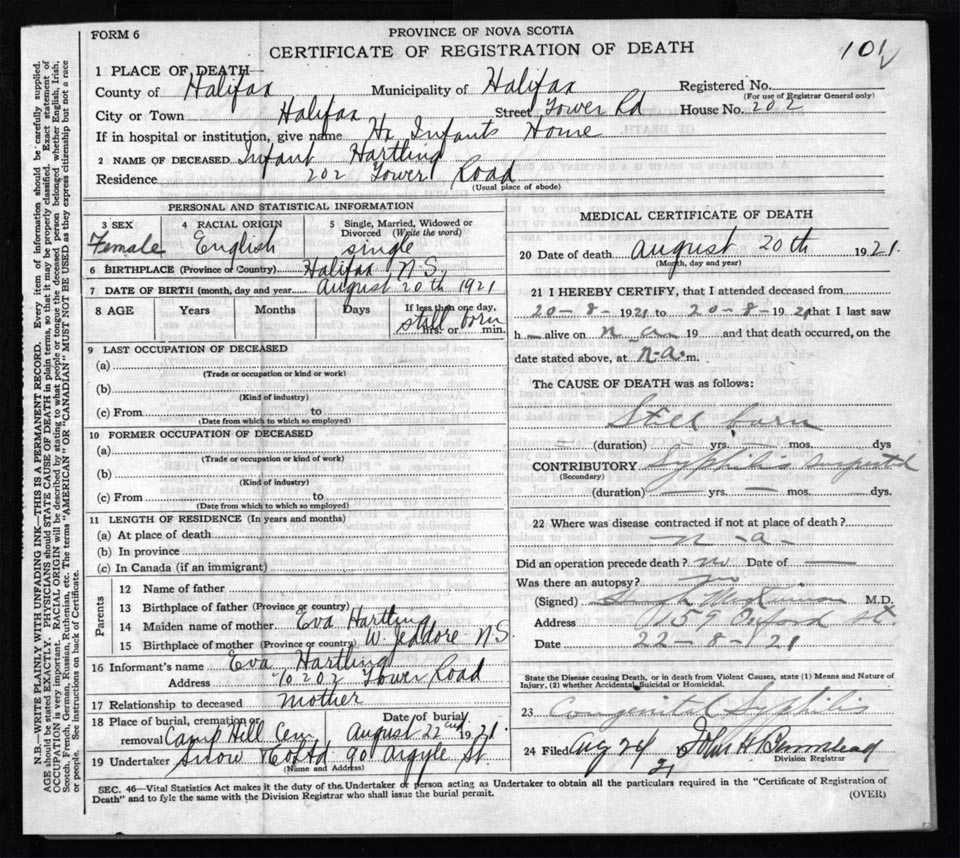 FORM 6
PROVINCE OF NOVA SCOTIA
CERTIFICATE OF REGISTRATION OF DEATH
101
1 PLACE OF DEATH
County of Halifax Municipality of Halifax Registered No.
(For use of Registrar General only)
City or Town Halifax Street Tower Rd House No. 202
If in hospital or institution, give name Hx Infants Home
2 NAME OF DECEASED Infant Hartling
Residence 202 Tower Road
(Usual place of abode)
PERSONAL AND STATISTICAL INFORMATION
3 SEX 4 RACIAL ORIGIN 5 Single, Married, Widowed or Divorced (Write the word)
Female English single
6 BIRTHPLACE (Province or Country) Halifax N.S.
7 DATE OF BIRTH (month, day and year August 20th 1921
8 AGE Years Months Days If less than one day,
still born
hrs. or min.
9 LAST OCCUPATION OF DECEASED
(a)
(Trade or occupation or kind or work)
(b)
(Kind of industry)
(c) From to
(Date from which to which so employed)
10 FORMER OCCUPATION OF DECEASED
(a)
(Trade or occupation or kind of work)
(b)
(Kind of industry)
(c) From to
(Date from which to which so employed)
11 LENGTH OF RESIDENCE (In years and months)
(a) At place of death
(b) In province
(c) In Canada (if an immigrant)
Parents
12 Name of father
13 Birthplace of father (Province or country)
14 Maiden name of mother Eva Hartling
15 Birthplace of mother (Province or country) W. Jeddore N S
16 Informant's name Eva Hartling
Address 202 Tower Road
17 Relationship to deceased mother
18 Place of burial, cremation or removal Camp Hill Cem. Date of burial August 22nd 1921
19 Undertaker Snow & Co Ltd 90 Argyle St
(Name and Address)
MEDICAL CERTIFICATE OF DEATH
20 Date of death august 20th 1921.
(Month, day and year)
21 I HEREBY CERTIFY, that I attended deceased from
20-8-1921 to 20-8-1921 that I last saw
h alive on n a 19 and that death occurred, on the
date stated above, at n-a- m.
The CAUSE OF DEATH was as follows:
Still born
(duration) yrs. mos. dys
CONTRIBUTORY Syphilis suspected
(Secondary)
(duration) — yrs. — mos. dys.
22 Where was disease contracted if not at place of death?
n - a -
Did an operation precede death? no Date of —
Was there an autopsy? no
(Signed) M.D.
Address Oxford St.
Date 22-8-21
State the Disease causing Death, or in death from Violent Causes, state (1) Means and Nature of Injury, (2) whether Accidental, Suicidal or Homicidal.
23 Congenital Syphilis
24 Filed Aug 24 21 John H Barnstead
Division Registrar
SEC. 46—Vital Statistics Act makes it the duty of the Undertaker or person acting as Undertaker to obtain all the particulars required in the "Certificate of Registration of
Death" and to fyle the same with the Division Registrar who shall issue the burial permit.
(OVER)
N.B.—WRITE PLAINLY WITH UNFADING INK—THIS IS A PERMANENT RECORD. Every item of information should be carefully supplied.
AGE should be stated EXACTLY. PHYSICIANS should STATE CAUSE OF DEATH in plain terms, so that it may be properly classified. Exact statement of
OCCUPATION is very important. RACIAL ORIGIN will be described by stating to what people or tongue the deceased person belonged whether English, Irish,
Scotch, French, German, Russian, Ruthenian, etc. The terms "AMERICAN" OR "CANADIAN" MUST NOT BE USED as they express citizenship but not a race
or people. See instructions on back of Certificate.